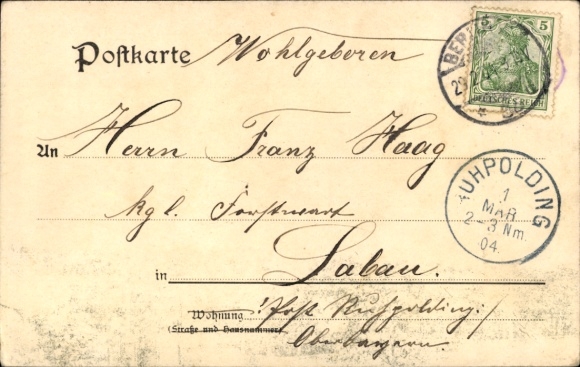 Postkarte Wohlgeboren
5
DEUTSCHES REICH
An Herrn Franz Haag
kgl. Forstwart
in Labau.
Wohnung
(Straße und Hausnummer)
/: Post Ruhpolding :/
Oberbayern.
RUHPOLDING
1
MAR
2-3 Nm.
04.